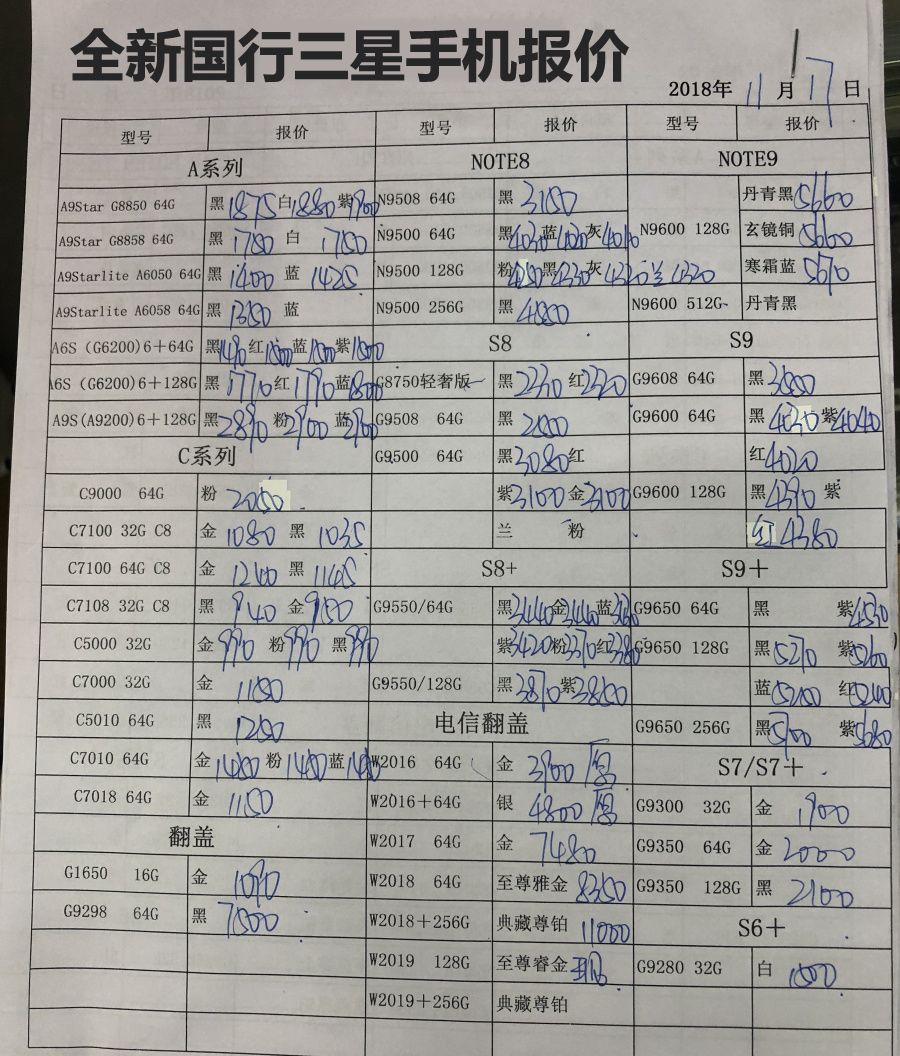 全新国行三星手机报价
2018年 11月 17日
型号 报价 型号 报价 型号 报价
A系列 NOTE8 NOTE9
A9Star G8850 64G 黑1875 白1880 紫1900 N9508 64G 黑3150 N9600 128G 丹青黑5600
A9Star G8858 64G 黑1750 白1750 N9500 64G 黑4030 蓝4020 灰4010 玄镜铜5600
A9Starlite A6050 64G 黑1400 蓝1425 N9500 128G 粉4250 黑4330 灰4320 兰4320 寒霜蓝5670
A9Starlite A6058 64G 黑1350 蓝 N9500 256G 黑4880 N9600 512G 丹青黑
A6S (G6200)6+64G 黑1490 红1500 蓝1500 紫1500 S8 S9
A6S (G6200)6+128G 黑1770 红1790 蓝1800 G8750轻奢版 黑2330 红2320 G9608 64G 黑
A9S(A9200)6+128G 黑2890 粉2900 蓝2900 G9508 64G 黑 G9600 64G 黑4030 紫4040
C系列 G9500 64G 黑3080 红 红4020
C9000 64G 粉2050 紫3100 金3100 G9600 128G 黑4390 紫
C7100 32G C8 金1080 黑1035 兰 粉 红4380
C7100 64G C8 金1240 黑1145 S8+ S9+
C7108 32G C8 黑940 金950 G9550/64G 黑3440 金3440 蓝 G9650 64G 黑 紫4530
C5000 32G 金990 粉990 黑990 紫3420 粉3370 红3380 G9650 128G 黑5270 紫5260
C7000 32G 金1150 G9550/128G 黑3870 紫3850 蓝5200 红5200
C5010 64G 黑1250 电信翻盖 G9650 256G 黑5700 紫5680
C7010 64G 金1450 粉1450 蓝1450 W2016 64G 金3900 S7/S7+
C7018 64G 金1150 W2016+64G 银4800 G9300 32G 金1900
翻盖 W2017 64G 金7480 G9350 64G 金2000
G1650 16G 金1090 W2018 64G 至尊雅金8350 G9350 128G 黑2100
G9298 64G 黑7500 W2018+256G 典藏尊铂11000 S6+
W2019 128G 至尊睿金 G9280 32G 白1500
W2019+256G 典藏尊铂